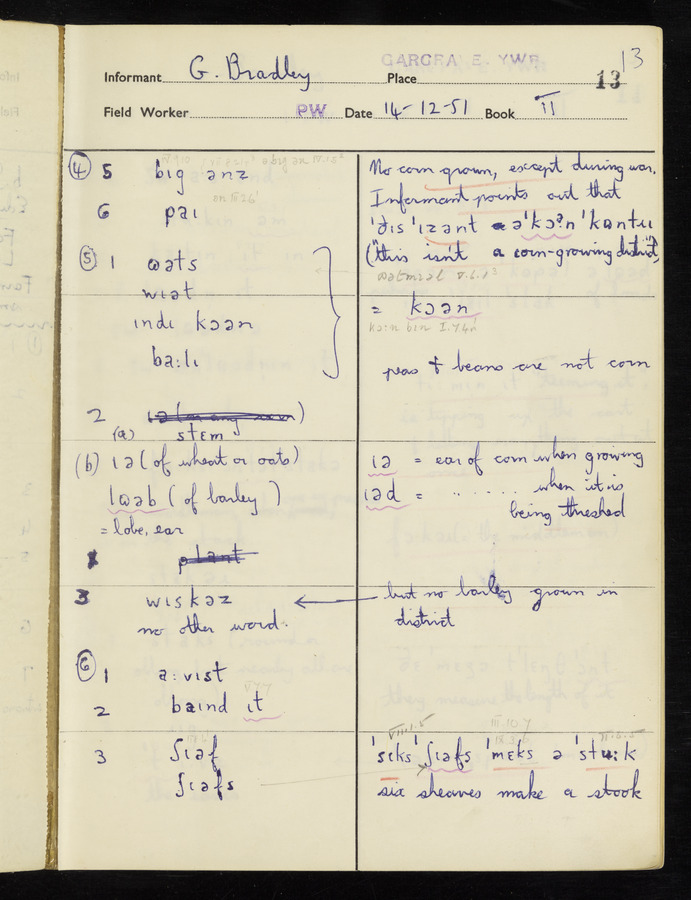 GARGRAVE. YWR
13
Informant G. Bradley Place 13
Field Worker PW Date 14-12-51 Book II
④ 5 bɪg ənz
No corn grown, except during war.
6 paɪ
Informant points out that
ˈðɪs ˈɪzənt əˈkɔʔn ˈkʊntɹɪ
("this isn't a corn-growing district")
⑤ 1 wats
wɪət
ɪndɪ kɔən
baːlɪ
= kɔən
peas & beans are not corn
2
(a) stɛm
(b) ɪə (of wheat or oats)
lωəb (of barley)
= lobe, ear
ɪə = ear of corn when growing
ɪəd = " ..... when it is
being threshed
plant
3 wɪskəz
no other word.
but no barley grown in
district
⑥ 1 aːvɪst
2 baɪnd ɪt
3 ʃɪəf
ʃɪəfs
VIII.1.5
III.10.7
ˈsɪks ˈʃɪəfs ˈmɛks ə ˈstuːk
six sheaves make a stook